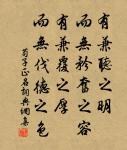 有兼聽之明
而無矜奮之容
有兼覆之厚
而無伐德之色
荀子正名詞典網集